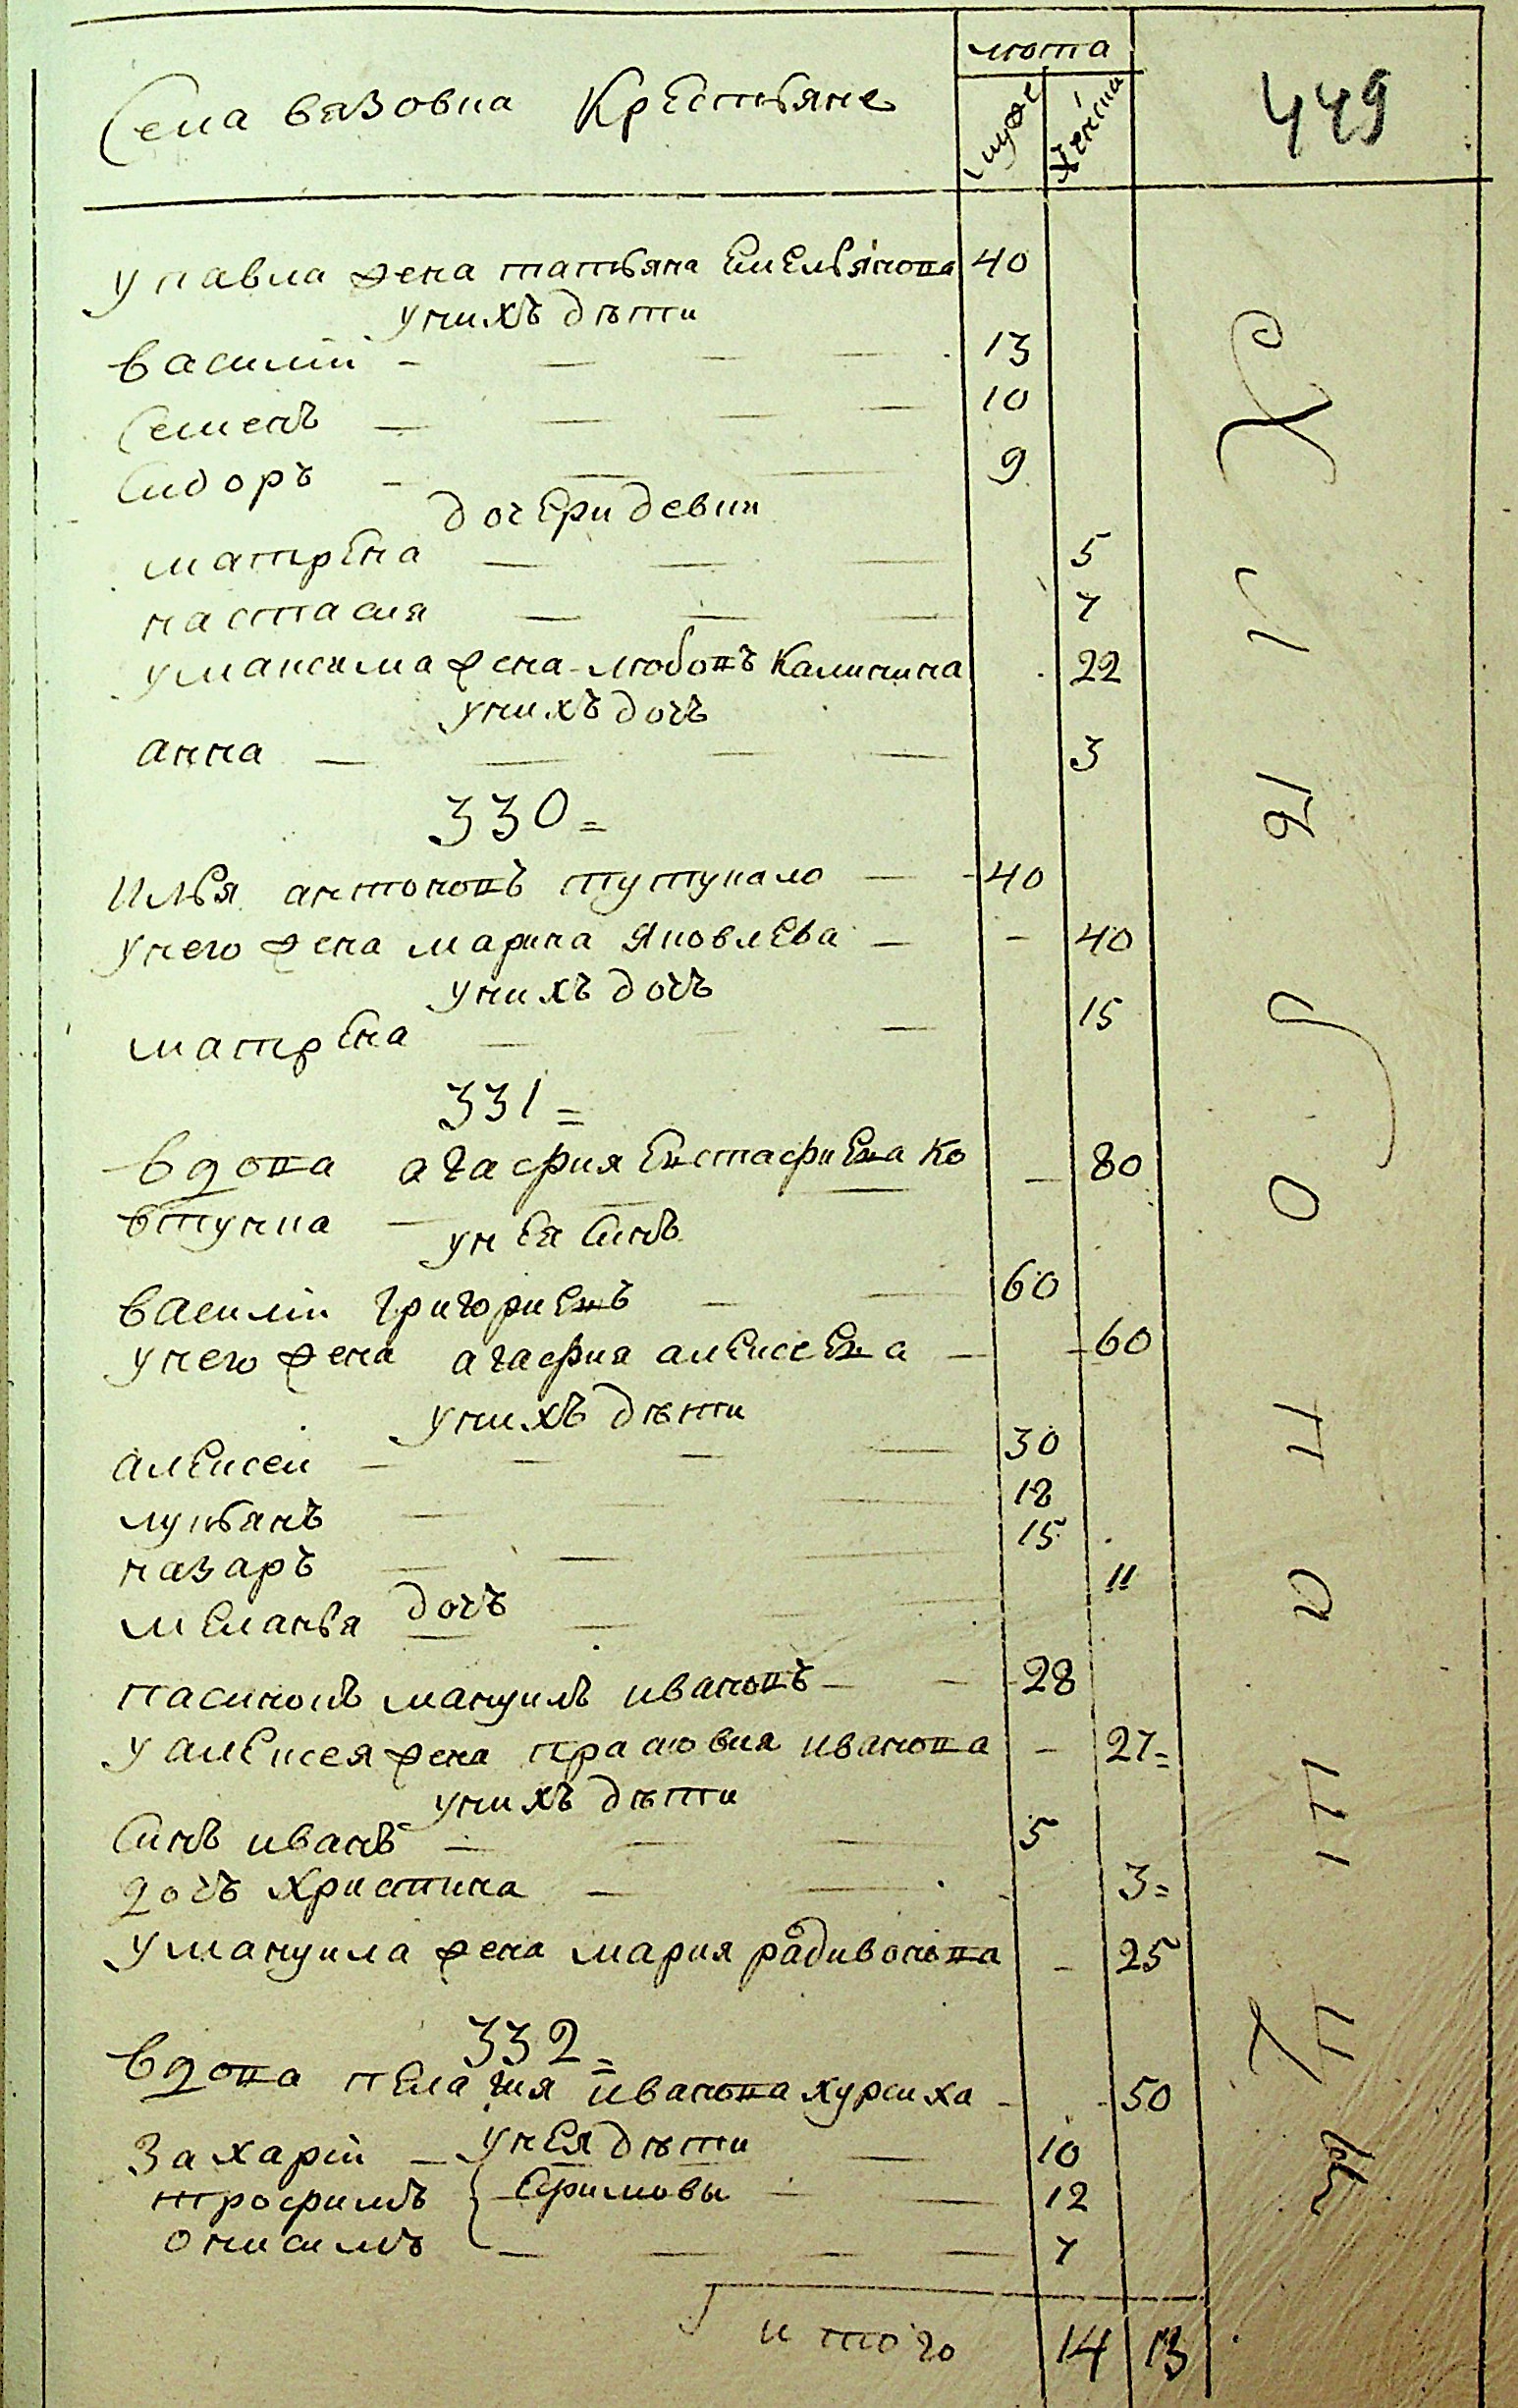 лѣта
Села вязовка Крестьяне
мужс
женска
449
у павла жена татьяна Емельянова 40
у нихъ дѣти
василии 13
Семенъ 10
Сидоръ 9
дочери девки
матрЕна 5
настасия 7
у максима жена любовъ Калинина 22
у нихъ дочъ
анна 3
330
Илья антоновъ тутукало 40
у него жена марина Яковлева 40
у нихъ дочъ
матрЕна 15
331
вдова агафия Евстафиева ко 80
втунка
у нЕя Синъ
василии григориевъ 60
у него жена агафия алексеева 60
у нихъ дѣти
алексеи 30
лукьянъ 18
назаръ 15
меланья дочъ 11
пасинокъ мануилъ ивановъ 28
у алексея жена прасковия иванова 27
у нихъ дѣти
Синъ иванъ 5
дочъ христина 3
у мануила жена мария радивонова 25
332
вдова пелагия иванова хурсиха 50
у нЕя дѣти
Захарии 10
трофимъ Ефимовы 12
онисимъ 7
итого 14 13